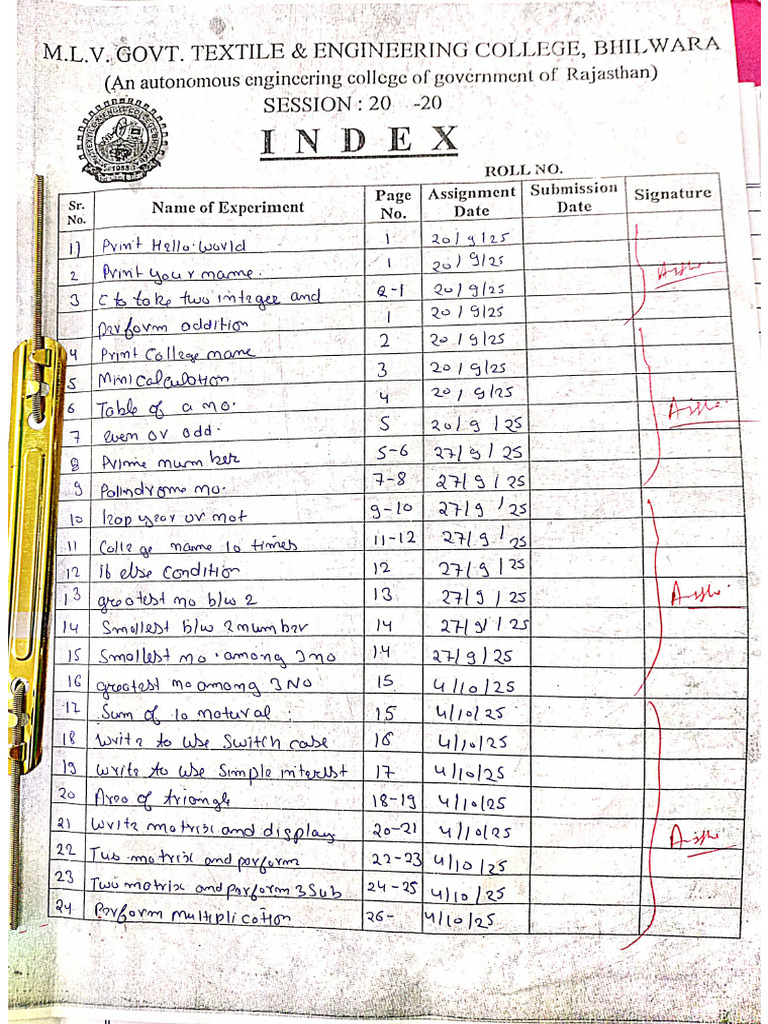 M.L.V. GOVT. TEXTILE & ENGINEERING COLLEGE, BHILWARA
(An autonomous engineering college of government of Rajasthan)
SESSION : 20 -20
INDEX
ROLL NO.
Sr. No. Name of Experiment Page No. Assignment Date Submission Date Signature
1) Print Hello world 1 20/9/25
2 Print your name. 1 20/9/25
3 C to take two integer and 2-1 20/9/25
perform addition 1 20/9/25
4 Print College name 2 20/9/25
5 Mini calculation 3 20/9/25
6 Table of a no. 4 20/9/25
7 even or odd. 5 20/9/25
8 Prime number 5-6 27/9/25
9 Palindrome no. 7-8 27/9/25
10 leap year or not 9-10 27/9/25
11 College name 10 times 11-12 27/9/25
12 if else condition 12 27/9/25
13 greatest no b/w 2 13 27/9/25
14 Smallest b/w 2 number 14 27/9/25
15 Smallest no. among 3 no 14 27/9/25
16 greatest no among 3 NO 15 4/10/25
17 Sum of 10 natural 15 4/10/25
18 write to use switch case 16 4/10/25
19 write to use simple interest 17 4/10/25
20 Area of triangle 18-19 4/10/25
21 write matrix and display 20-21 4/10/25
22 Two matrix and perform 22-23 4/10/25
23 Two matrix and perform 3 Sub 24-25 4/10/25
24 Perform Multiplication 26- 4/10/25